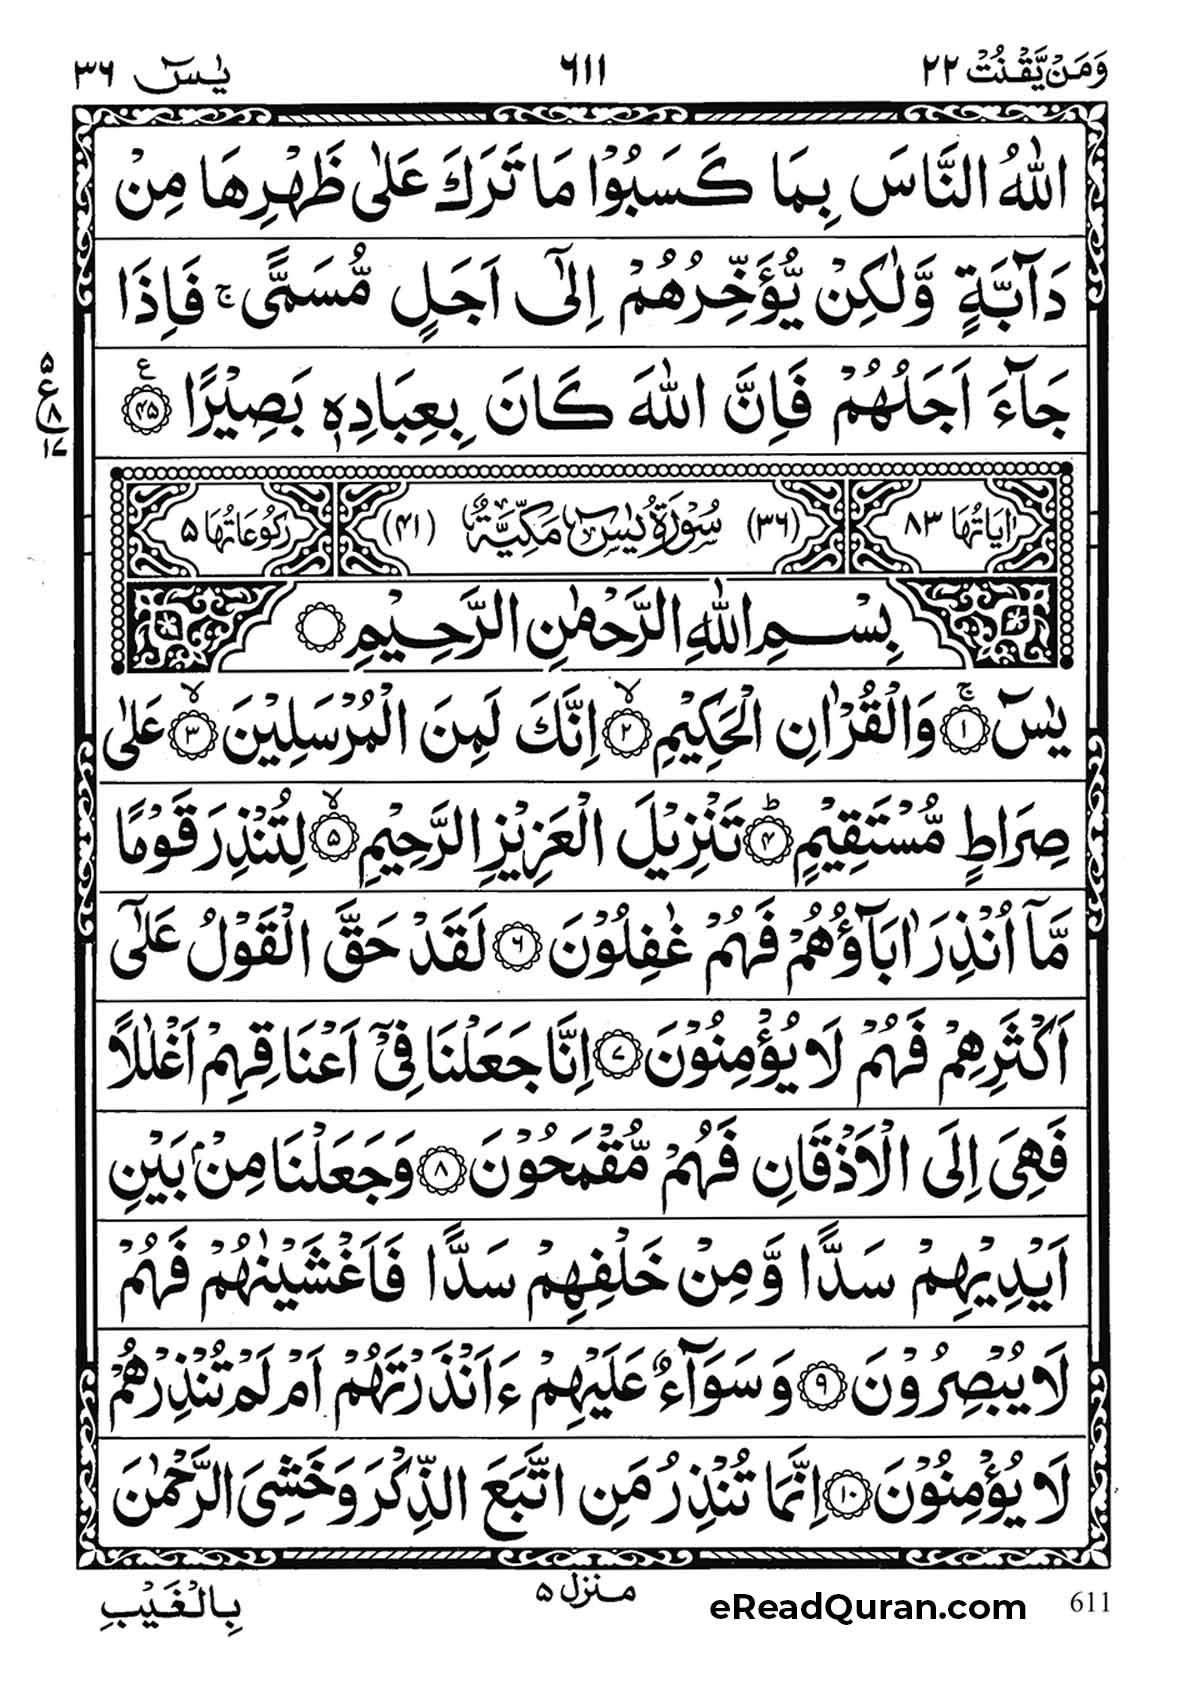 وَمَنْ يَّقْنُتْ ٢٢ ٦١١ يٰسٓ ٣٦
اللّٰهُ النَّاسَ بِمَا كَسَبُوْا مَا تَرَكَ عَلٰى ظَهْرِهَا مِنْ
دَآبَّةٍ وَّلٰكِنْ يُّؤَخِّرُهُمْ اِلٰٓى اَجَلٍ مُّسَمًّىۚ فَاِذَا
جَآءَ اَجَلُهُمْ فَاِنَّ اللّٰهَ كَانَ بِعِبَادِهٖ بَصِيْرًا ۴۵ ع
۵
ع
٨
١٧
اٰيَاتُهَا ٨٣ (٣٦) سُوْرَةُ يٰسٓ مَكِّيَّةٌ (٤١) رُكُوْعَاتُهَا ۵
بِسْمِ اللّٰهِ الرَّحْمٰنِ الرَّحِيْمِ
يٰسٓ ۚ ١ وَالْقُرْاٰنِ الْحَكِيْمِ ۙ ٢ اِنَّكَ لَمِنَ الْمُرْسَلِيْنَ ۙ ٣ عَلٰى
صِرَاطٍ مُّسْتَقِيْمٍ ؕ ۴ تَنْزِيْلَ الْعَزِيْزِ الرَّحِيْمِ ۙ ۵ لِتُنْذِرَ قَوْمًا
مَّآ اُنْذِرَ اٰبَآؤُهُمْ فَهُمْ غٰفِلُوْنَ ٦ لَقَدْ حَقَّ الْقَوْلُ عَلٰٓى
اَكْثَرِهِمْ فَهُمْ لَا يُؤْمِنُوْنَ ٧ اِنَّا جَعَلْنَا فِيْٓ اَعْنَاقِهِمْ اَغْلٰلًا
فَهِيَ اِلَى الْاَذْقَانِ فَهُمْ مُّقْمَحُوْنَ ٨ وَجَعَلْنَا مِنْۢ بَيْنِ
اَيْدِيْهِمْ سَدًّا وَّمِنْ خَلْفِهِمْ سَدًّا فَاَغْشَيْنٰهُمْ فَهُمْ
لَا يُبْصِرُوْنَ ٩ وَسَوَآءٌ عَلَيْهِمْ ءَاَنْذَرْتَهُمْ اَمْ لَمْ تُنْذِرْهُمْ
لَا يُؤْمِنُوْنَ ١٠ اِنَّمَا تُنْذِرُ مَنِ اتَّبَعَ الذِّكْرَ وَخَشِيَ الرَّحْمٰنَ
منزل ۵
بِالْغَيْبِ
eReadQuran.com 611